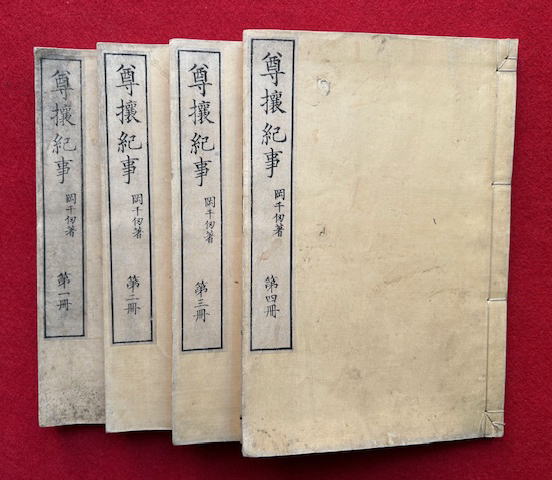 尊攘紀事
岡千仞著
第四冊
尊攘紀事
岡千仞著
第三冊
尊攘紀事
岡千仞著
第二冊
尊攘紀事
岡千仞著
第一冊